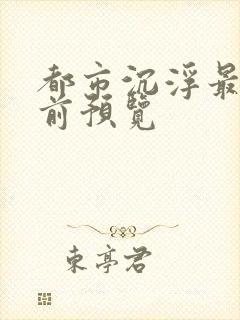 都市沉浮最
前預覽
東亭君